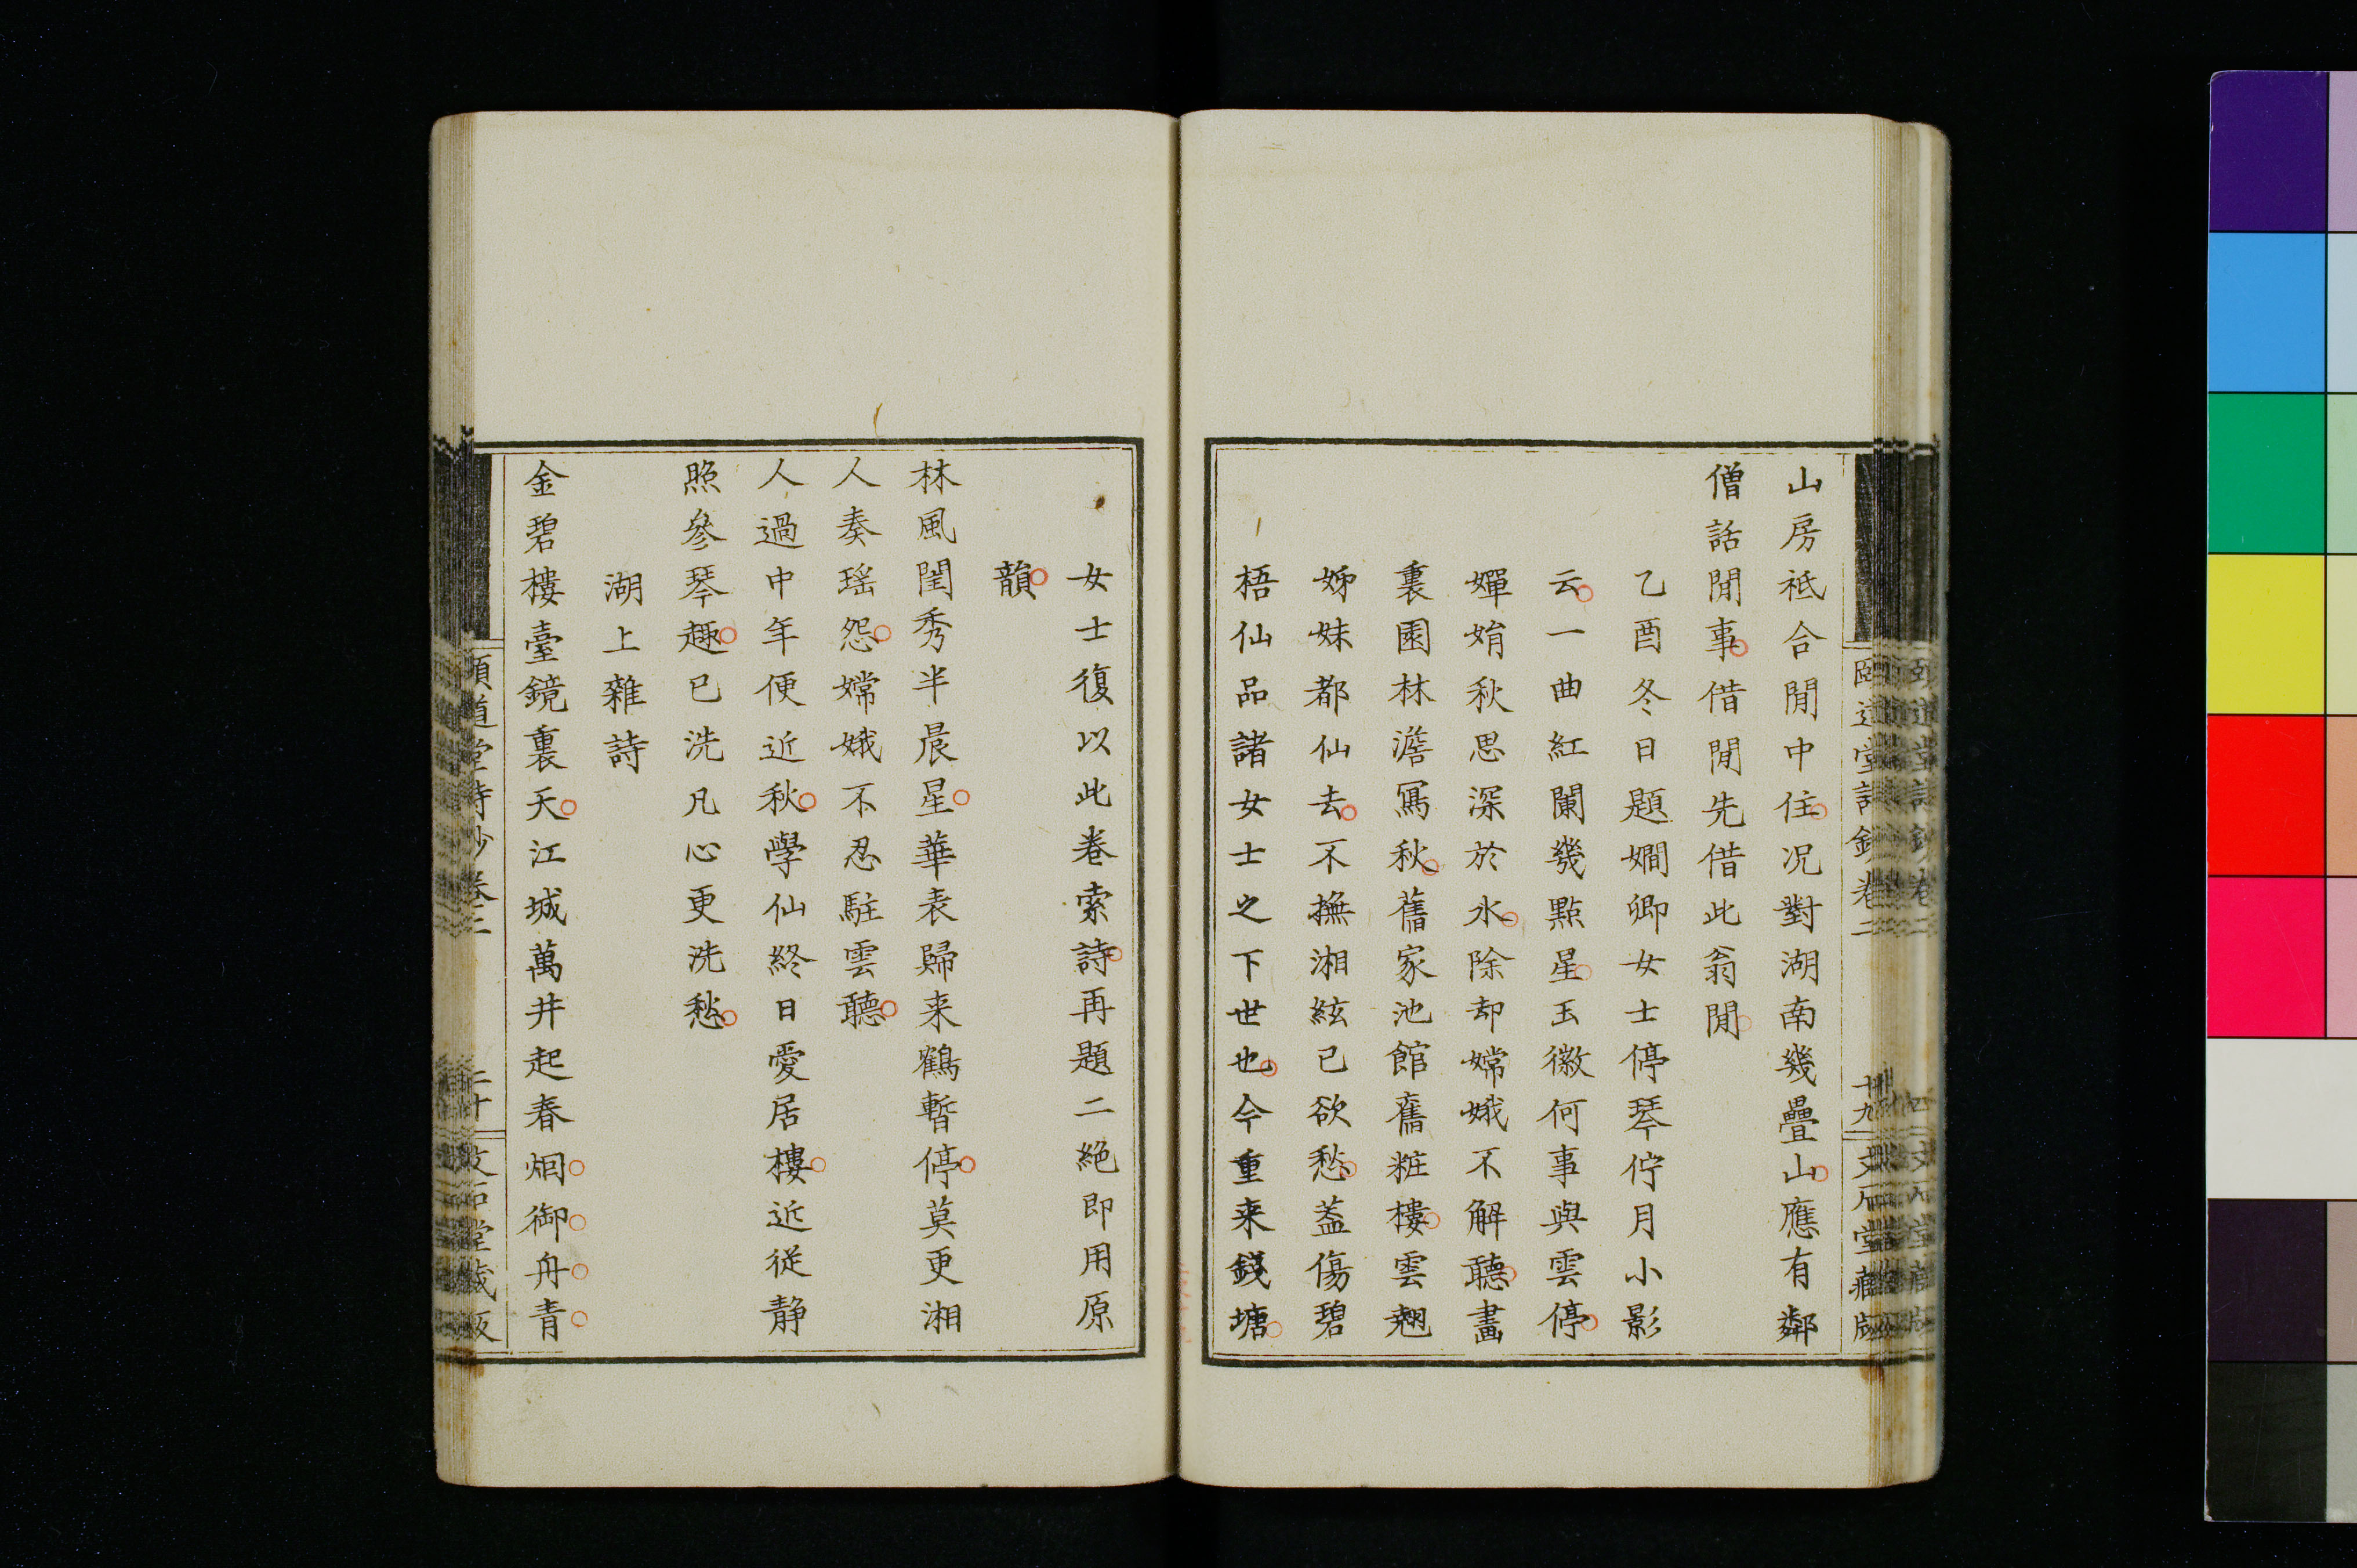 山房祗合閒中住况對湖南幾疊山應有鄰
僧話閒事借閒先借此翁閒
乙酉冬日題嫺卿女士停琴佇月小影
云一曲紅闌幾點星玉徽何事與雲停
嬋娟秋思深於水除却嫦娥不解聽畫
裏園林澹寫秋舊家池館舊粧樓雲翹
姊妹都仙去不撫湘絃已欲愁蓋傷碧
梧仙品諸女士之下世也今重来錢塘
女士復以此卷索詩再題二絶即用原
韻
林風閨秀半晨星華表歸来鶴暫停莫更湘
人奏瑶怨嫦娥不忍駐雲聽
人過中年便近秋學仙終日愛居樓近從静
照參琴趣已洗凡心更洗愁
湖上雜詩
金碧樓臺鏡裏天江城萬井起春烟御舟青
頤道堂詩鈔卷二
二十